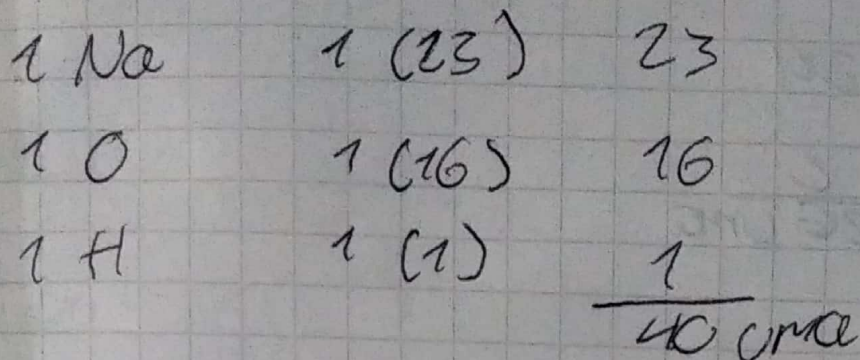 1 Na 1 (23) 23
1 O 1 (16) 16
1 H 1 (1) 1
40 uma